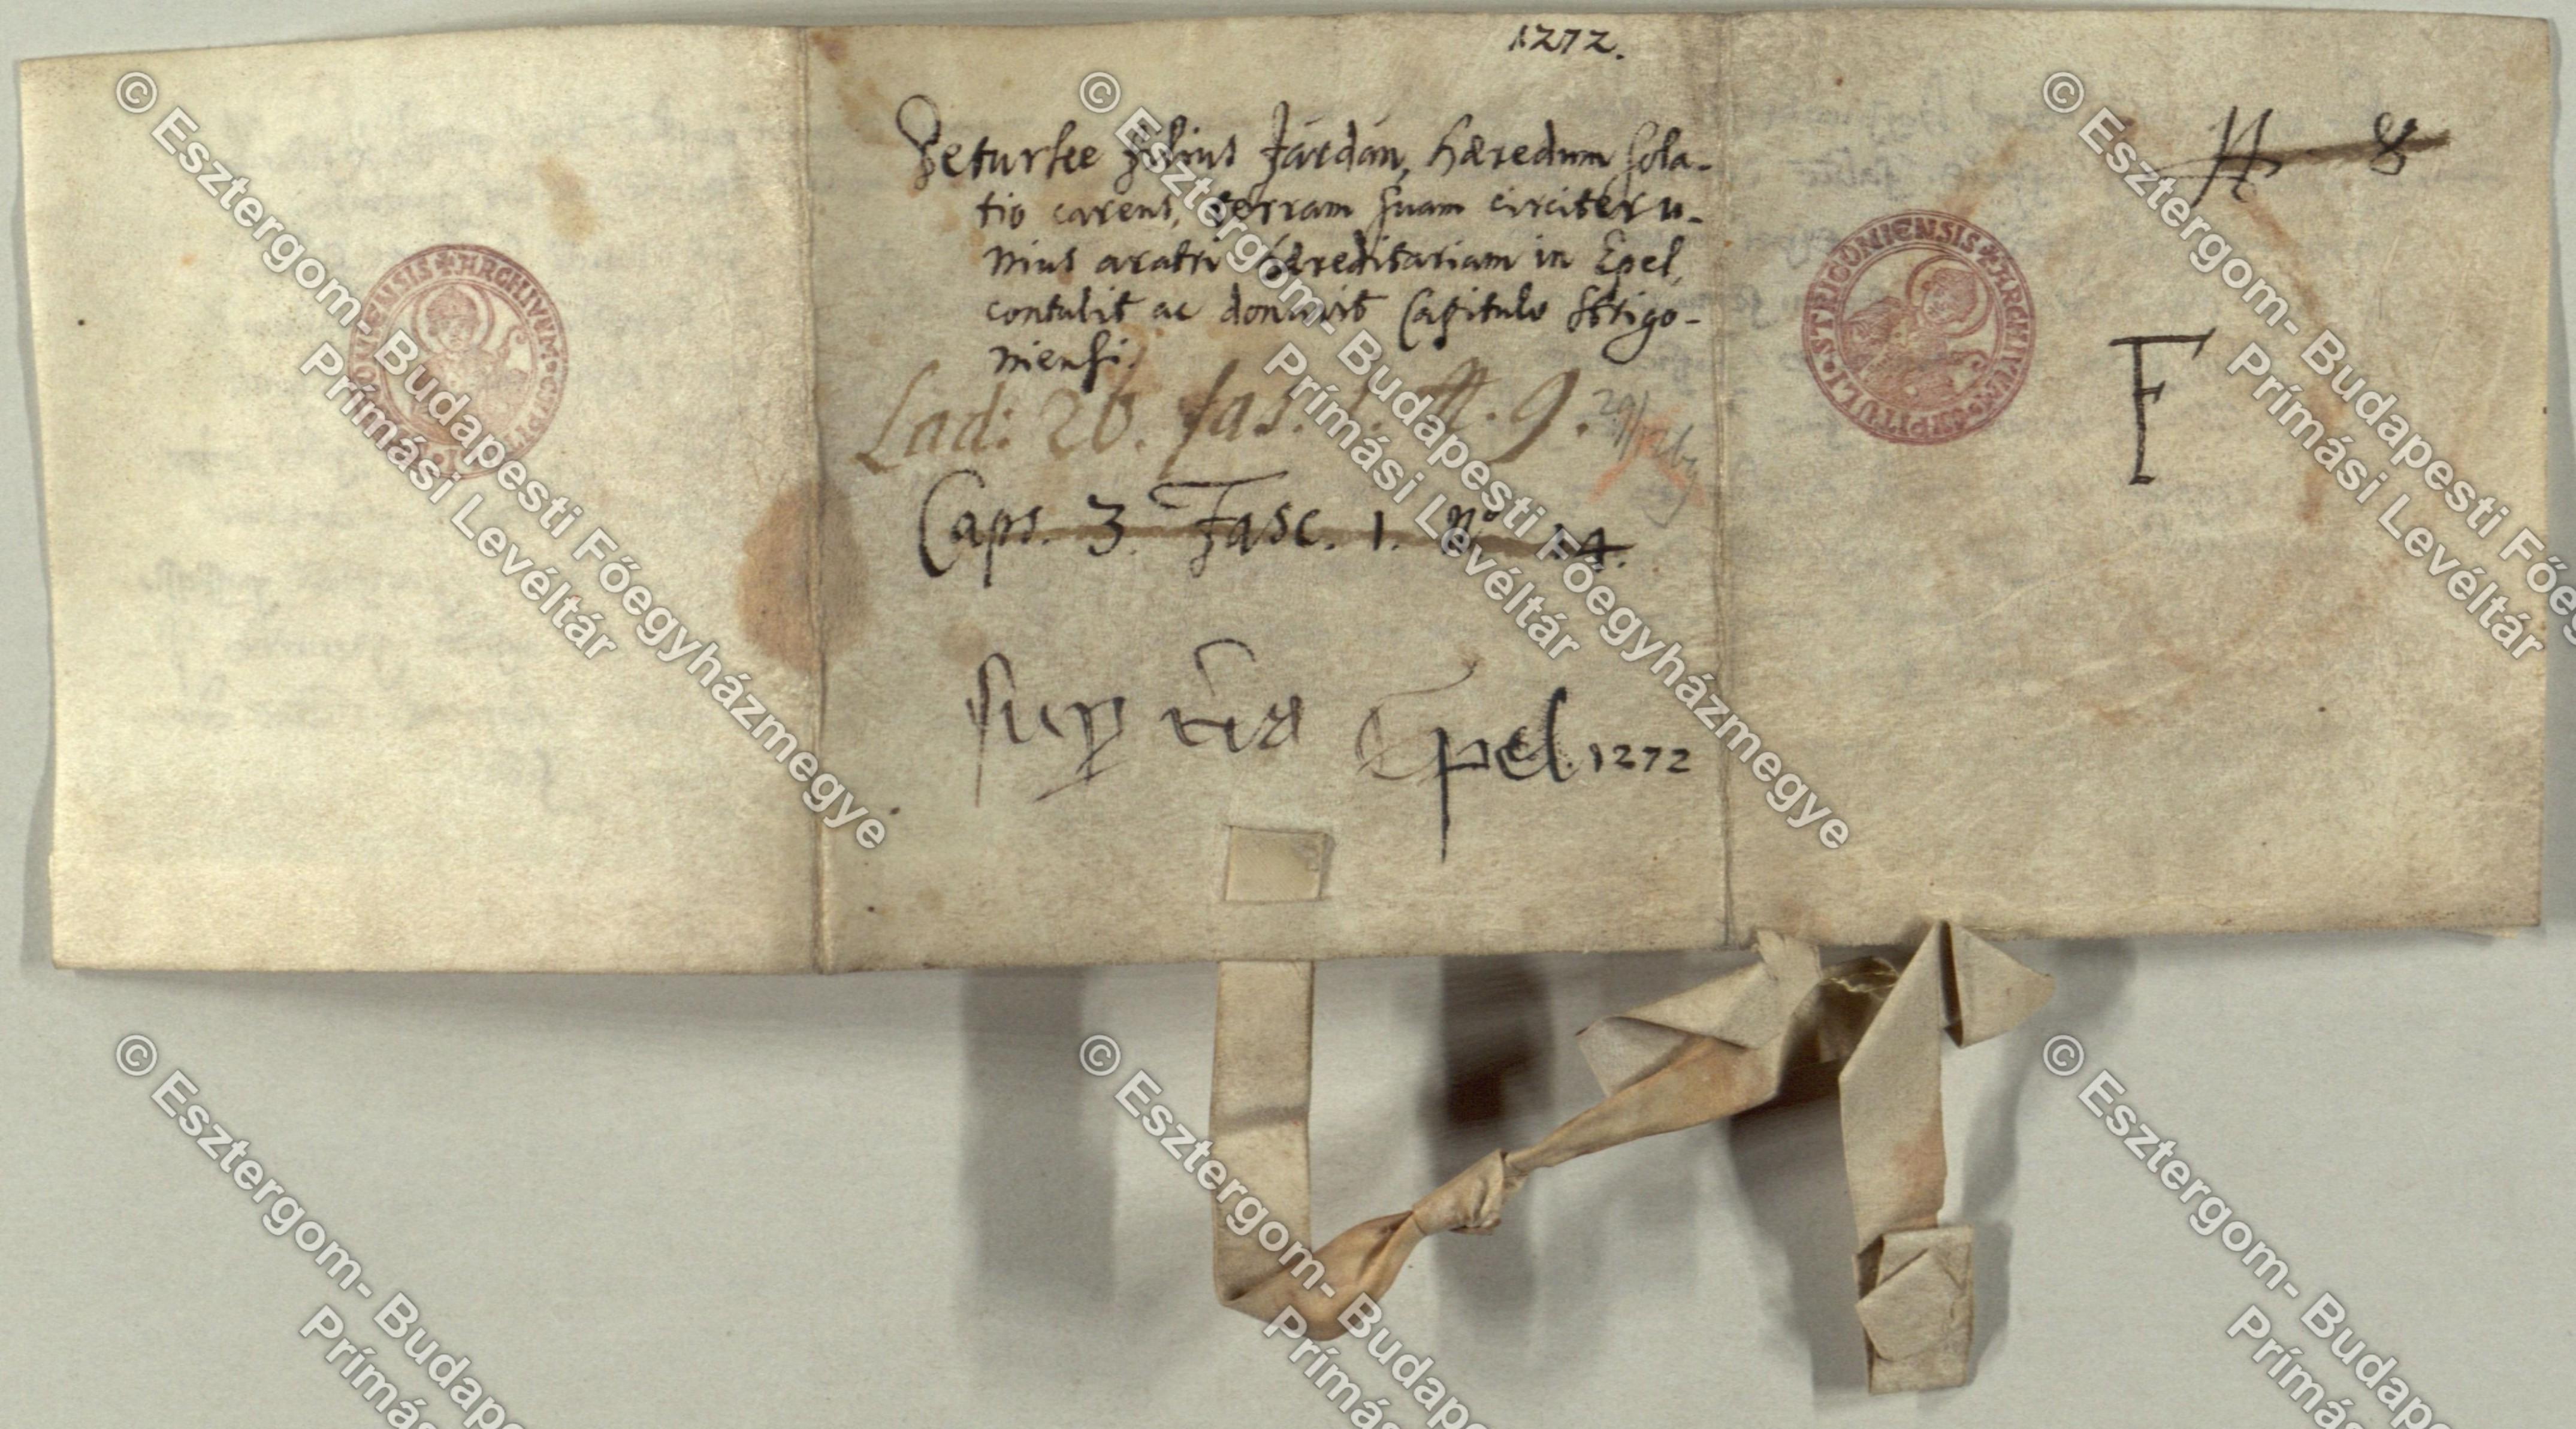 1272.
Peturke filius Jardan, hæredum sola-
tio carens, terram suam circiter u-
nius aratri hæreditariam in Epel,
contulit ac donavit Capitulo Strigo-
niensi.
Lad: 26. fas. 1. # 9.
Caps. 3. Fasc. 1. No 4.
Epel. 1272
# 8
F
ARCHIVUM · CAPITULI · STRIGONIENSIS
ARCHIVUM · CAPITULI · STRIGONIENSIS
© Esztergom- Budapesti Főegyházmegye
Prímási Levéltár
© Esztergom- Budapesti Főegyházmegye
Prímási Levéltár
© Esztergom- Budapesti Főeg
Prímási Levéltár
© Esztergom- Budape
Prímás
© Esztergom- Budape
Prímás
© Esztergom- Budape
Prímás